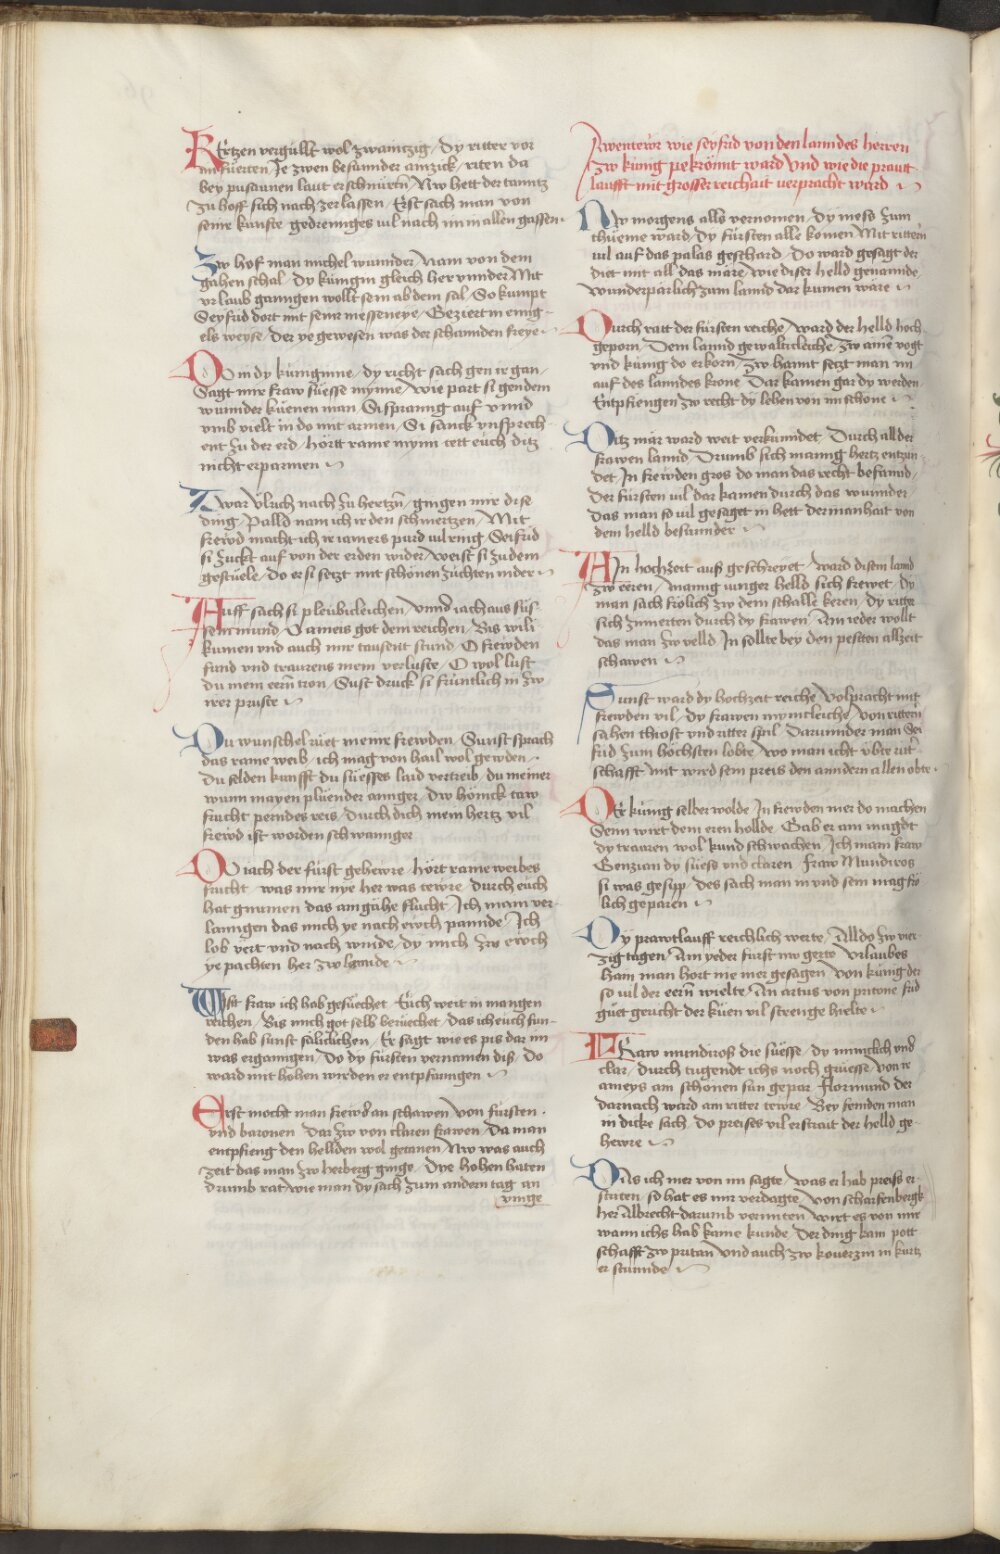 Kertzen vergullt wol zwaintzig / Dy ritter vor
im fuerten Je zwen besunnder ainzick / riten da
bey pusaunen laut erschnürrn Nw hett der tanntz
zu hoff sich nach zerlassen / Erst sach man von
seine kunfte gedrennges vil nach im in allen gassen
Zw hof man michel wunnder Nam von dem
gähen schal / Dy künigin gleich her vnnder Mit
vrlaub ganngen wollt sein ab dem sal / So kumpt
Seyfrid dort mit seine messeneye / Geziert in ennig
els weyse / der ye gewesen was der schannden freye
Do in dy küniginne / dy richt sach gen ir gan /
Sagt mir fraw süesse mynne / wie part si gen dem
wunnder küenen man / Si spranng auf vnnd
vmb vielt in do mit armen / Si sanck vnsprech
ent zu der erd / hörtt raine mynn cett euch ditz
nicht erparmen
Zwar vlüch nach zu hertzn / gingen mir dise
ding / Palld nam ich ir den schmertzen / Mit
frewd macht ich ir iamers purd vil ring Seifrid
si zuckt auf von der erden wider / weist si zu dem
gestüele / do er si setzt mit schönen züchten nider
Auff sach si pleubicleichen / vnnd iach aus süs
sem mund / O ameis got dem reichen / Bis wili
kumen vnd auch mir tausent stund / O frewden
fund vnd traurens mein verluste / O wol lust
du mein eern tron / Sust druck si früntlich in zw
irer pruste
Du wunschel rüet meine frewden / Sunst sprach
das raine weib / ich mag von hail wol gewden
Du selden kunfft du süesses laid vertreib / du meiner
wunn mayen plüender annger / dw hönick taw
frucht perndes reis / durch dich mein hertz vil
frewd ist worden schwannger
Do iach der fürst gehewre / hört raine weibes
frucht / was mir nye her was tewre / durch euch
hat gnumen das ain gähe flucht / Ich main ver
lanngen das mich ye nach ewch pannde / Ich
lob vert vnd nach winde / dy mich zw ewch
ye pachten her zw lannde
Wist fraw ich hab gesuechet / Euch weit in mangen
reichen / Bis mich got selb beruecket / das ich euch fun
den hab sunst säliclichen / Er sagt wie es pis dar im
was erganngen / Do dy fürsten vernamen diß / Do
ward mit hohen wirden er entpfanngen
Erst mocht man frewd an schawen von fürsten
vnd baronen / Dar zw von claren frawen / Da man
entpfieng den hellden wol getanen / Nw was auch
zeit das man zw herberg ginge / Dye hohen haten
drumb rat wie man dy sach zum andern tag an
vinge
Awentewr wie seyfrid von den lanndes herren
zw künig pekrönnt ward vnd wie die prautt
laufft mit grosser reichait verpracht ward
Nw morgens alls vernomen / Dy mess zum
thüeme ward / Dy fürsten alle komen Mit rittern
vil auf das palas geschard / Do ward gesagt der
diet mit all das märe / wie diser helld genannde
wunderparlich zum lannd dar kumen ware
Durch ratt der fürsten reiche / ward der helld hoch
geporn / Dem lannd gewalticleiche / zw ainē vogt
vnd künig do erkorn / zw hannt setzt man im
auf des lanndes krone / Dar kamen gar dy werden
Entpfiengen zw recht dy lehen von im schone
Ditz mär ward weit verkunndet / Durch all der
frawen lannd / Drumb sich mannig hertz entzün
det / In frewden gros do man das recht befannd /
Der fürsten vil dar kamen durch das wunnder
Das man so vil gesaget in hett der manhait von
dem helld besunnder
Ain hochzeit auß geschreyet / ward disem lannd
zw eeren / Mannig iunger helld sich frewet / Dy
man sach frölich zw dem schalle keren / Dy ritter
sich zimerten durch dy frawen / Ain ieder wollt
das man zw velld / In sollte bey den pessten allzeit
schawen
Sunst ward dy hochzeit reiche / Volpracht mit
frewden vil / Dy frawen mynicleiche / von rittern
sahen thiost vnd ritter spil / Darunnder man Sei
frid zum höchsten lobte / wo man icht vbte rit
schafft mit wird sein preis den anndern allen obte
Der künig selber wolde / In frewden mer do machen
Senn wirt dem eren hollde / Gab er ain magdt
dy trauren wol kund schwachen / Ich main fraw
Genzian dy süess vnd claren / fraw Mundiros
si was gesipp / des sach man in vnd sein mag frö
lich geparen
Dy prawtlauff reichlich werte / Alldo zw vier
zig tagen / Ain yeder fürst nw gerte vrlaubes
ham / man hort nie mer gesagen / von künig der
so vil der eern wielte / An artus von pritone sud
guet gerucht der küen vil strenge hielte
Fraw mundiroß die süesse / dy mynniclich vnd
clar / durch tugendt ichs noch grüesse / von ir
ameys am schonen sun gepar / Flormund der
darnach ward ain ritter tewre / Bey feinden man
in dicke sach / Do preises vil erstrait der helld ge
hewre
Das ich mer von im sagte / was er hab preiss er
striten / so hat es mir verdagte / von scharfenbergk
her Albrecht darumb vermiten / wirt es von mir
wann ichs hab kaine kunde / Der ding kain pott
schafft zw pritan / vnd auch zw koverzin in kurtz
er stunnde